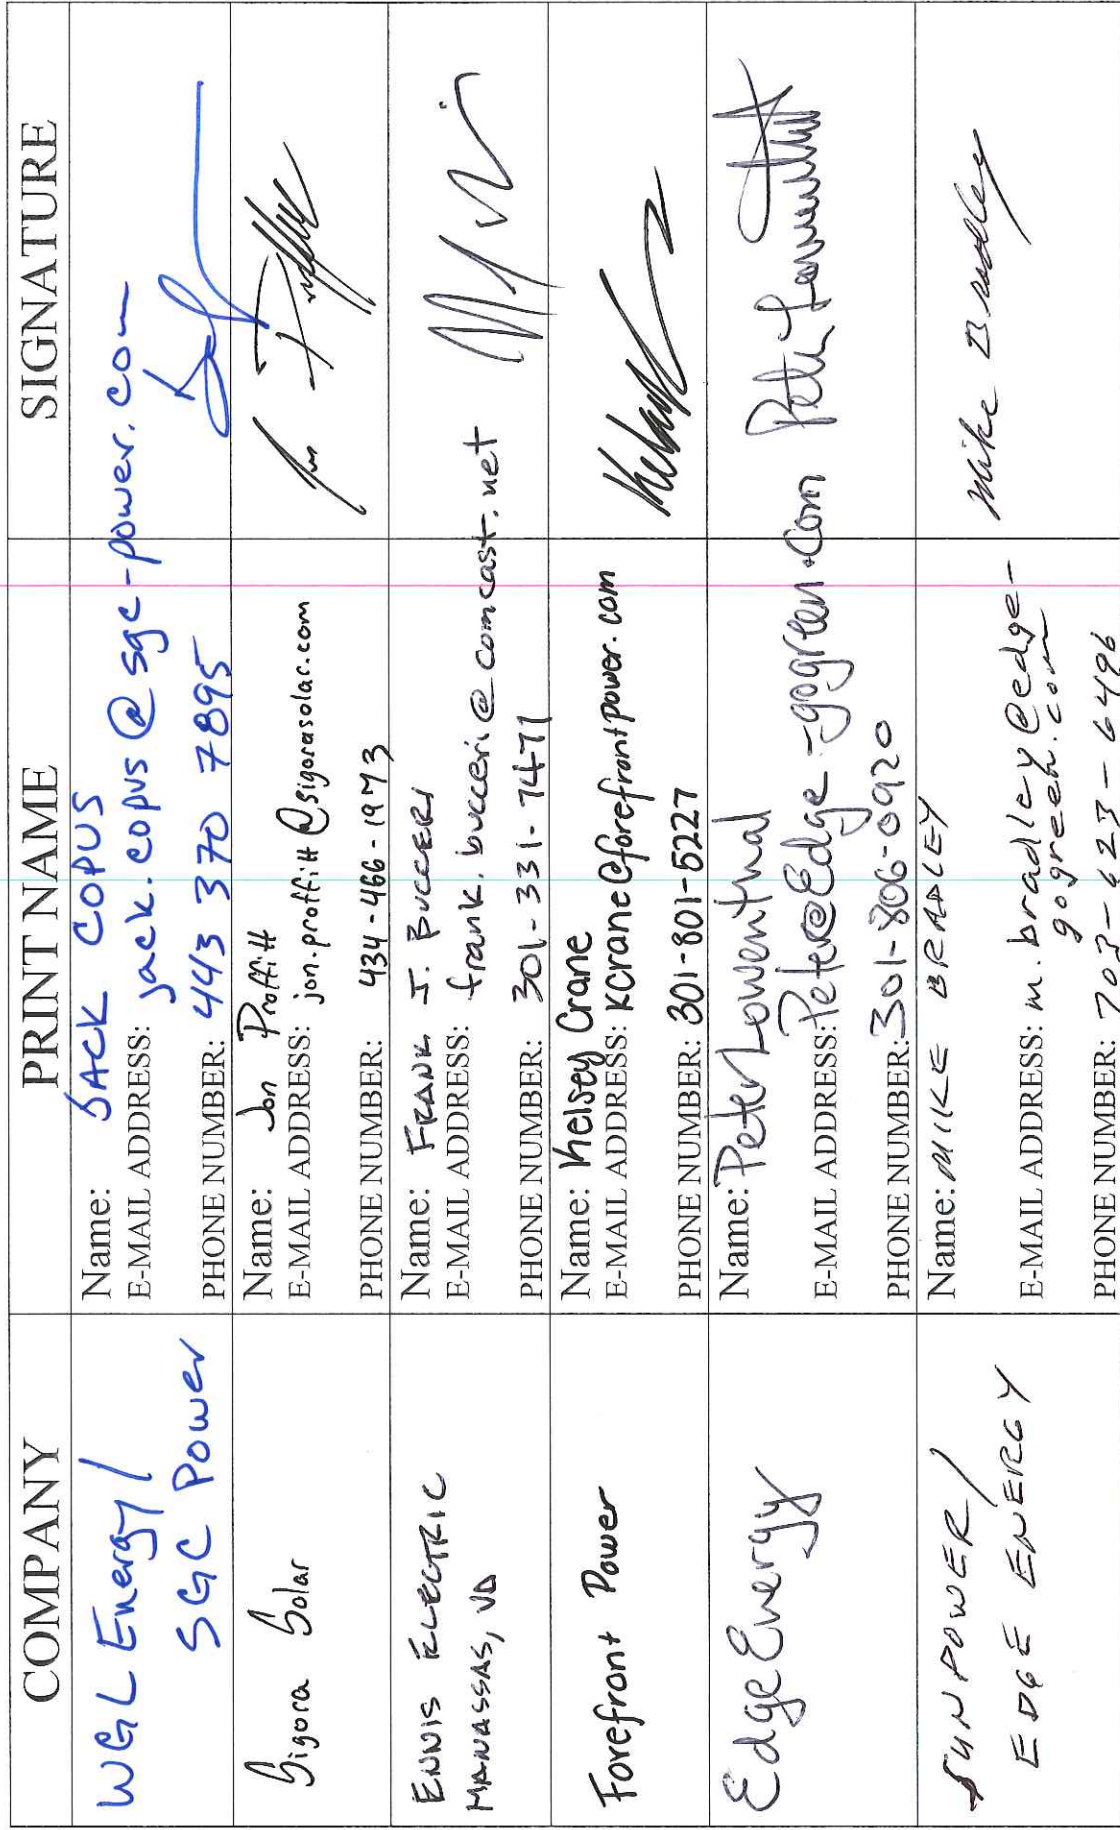 COMPANY PRINT NAME SIGNATURE
WGL Energy/
SGC Power
Name: JACK COPUS
E-MAIL ADDRESS: jack.copus@sgc-power.com
PHONE NUMBER: 443 370 7895
Sigora Solar
Name: Jon Proffitt
E-MAIL ADDRESS: jon.proffitt@sigorasolar.com
PHONE NUMBER: 434-466-1973
ENNIS ELECTRIC
MANASSAS, VA
Name: FRANK J. BUCCERI
E-MAIL ADDRESS: frank.bucceri@comcast.net
PHONE NUMBER: 301-331-7471
Forefront Power
Name: Kelsey Crane
E-MAIL ADDRESS: kcrane@forefrontpower.com
PHONE NUMBER: 301-801-5227
Edge Energy
Name: Peter Lowenthal
E-MAIL ADDRESS: Peter@Edge-gogreen.com
PHONE NUMBER: 301-806-0920
SUNPOWER/
EDGE ENERGY
Name: MIKE BRADLEY
Mike Bradley
E-MAIL ADDRESS: m.bradley@edge-
gogreen.com
PHONE NUMBER: 703-623-6496